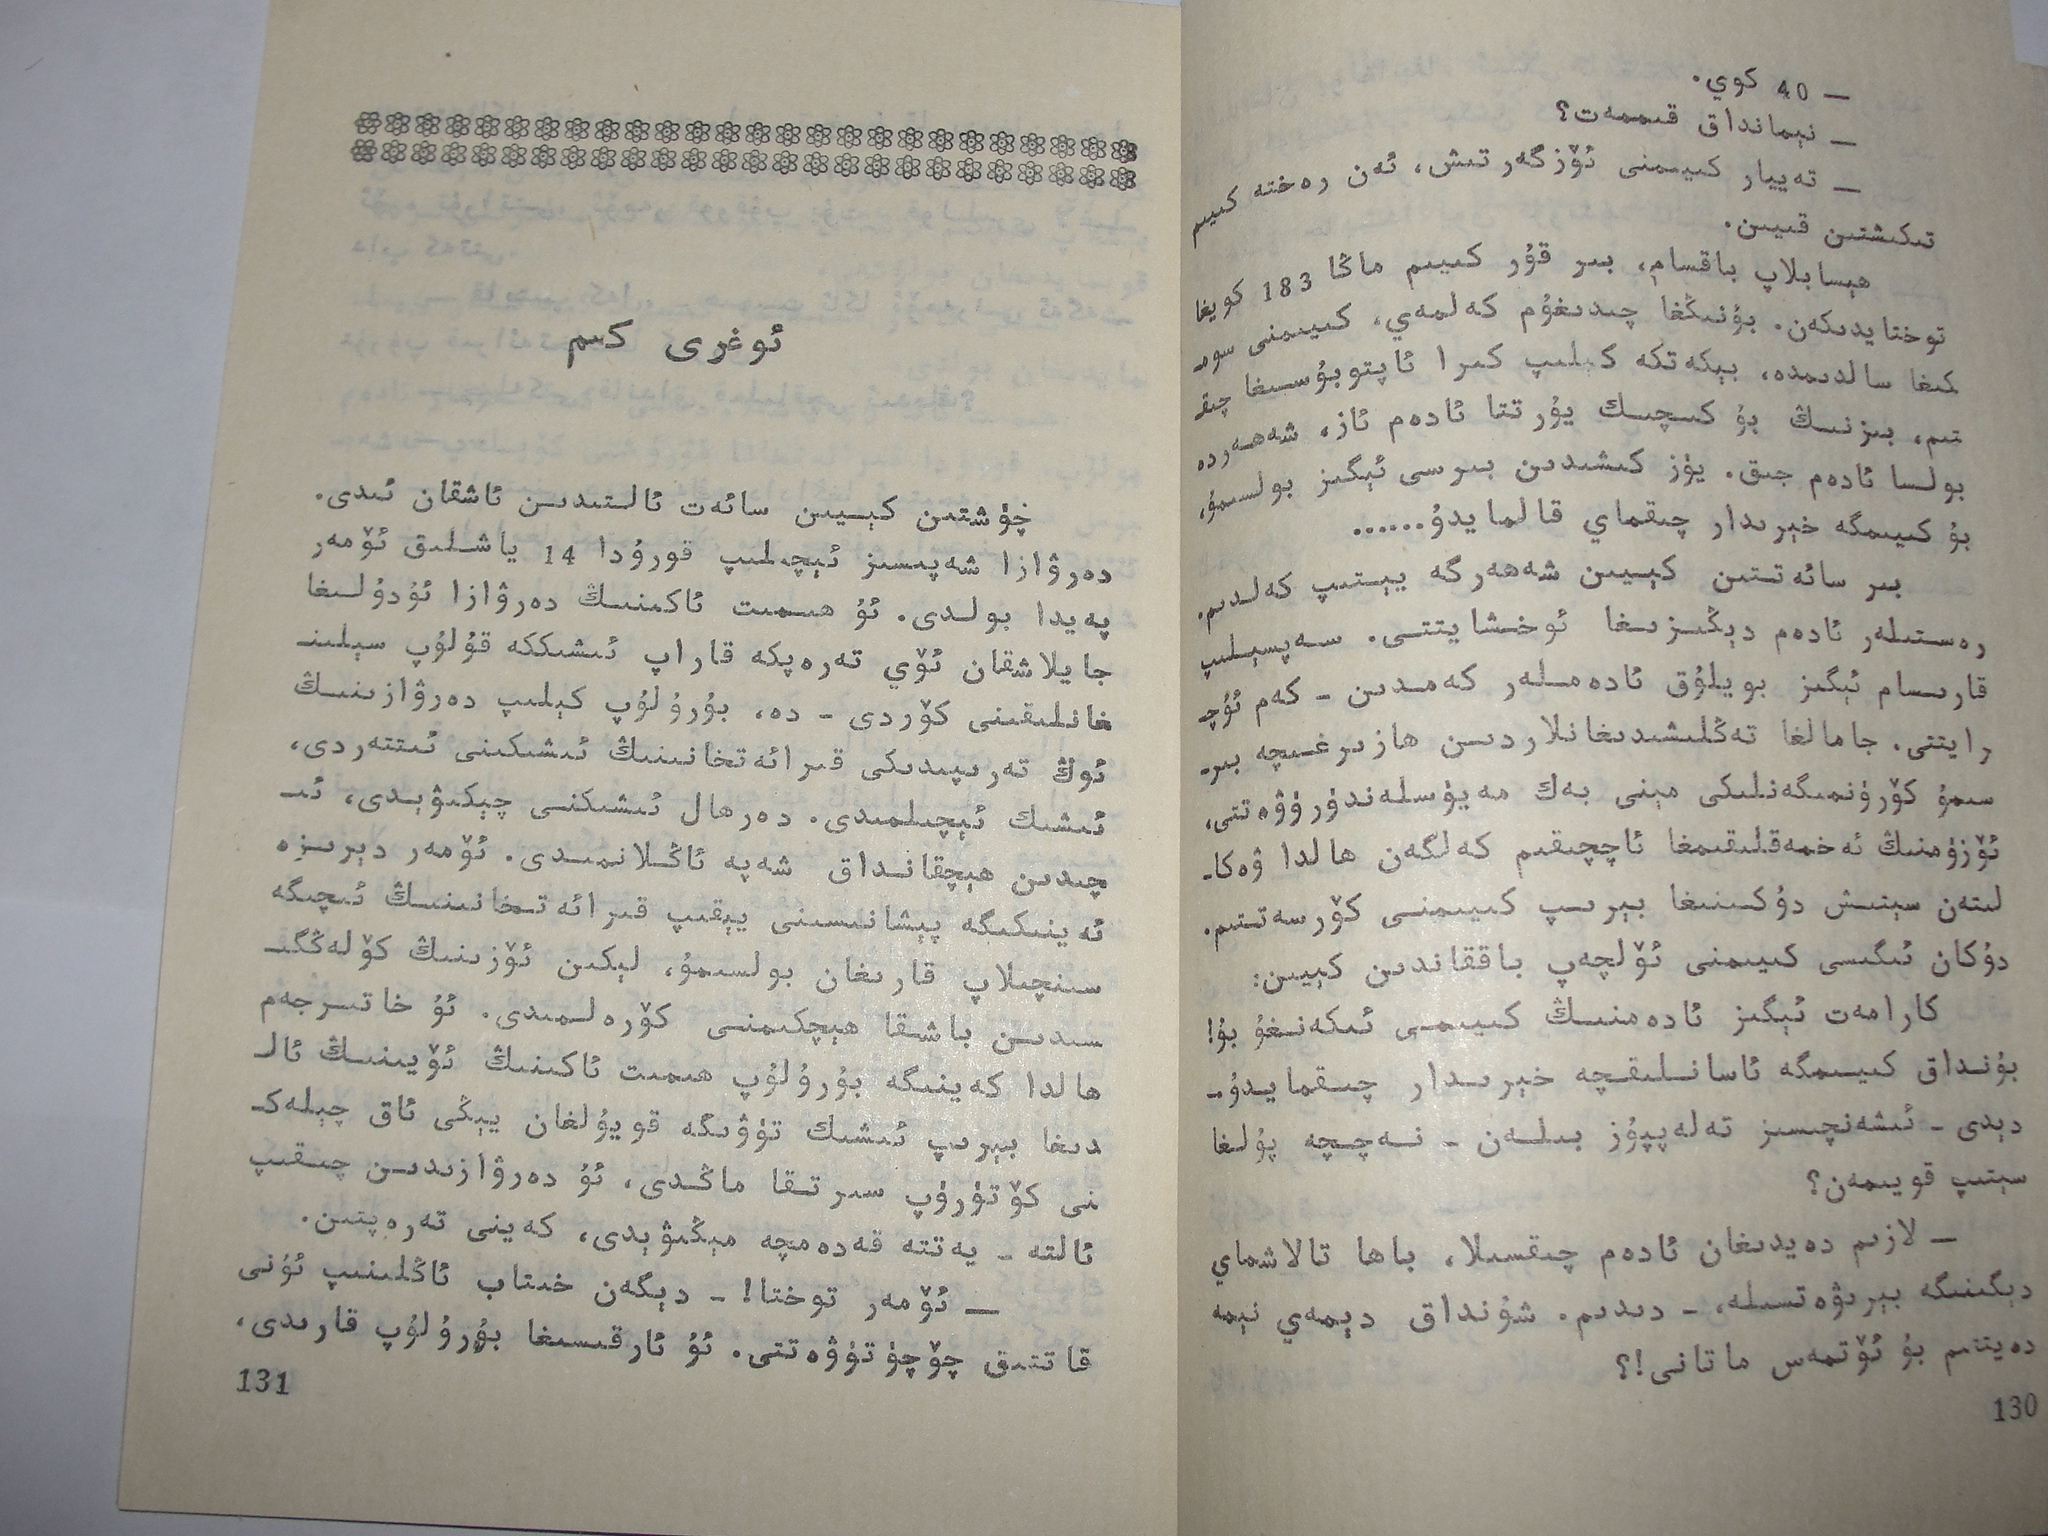 — 40 كوي.
— نېمانداق قىممەت؟
— تەييار كىيىمنى ئۆزگەرتىش، ئەن رەختە كىيىم
تىكىشتىن قىيىن.
ھېسابلاپ باقسام، بىر قۇر كىيىم ماڭا 183 كويغا
توختايدىكەن. بۇنىڭغا چىدىغۇم كەلمەي، كىيىمنى سوم‍ـ
كىغا سالدىمدە، بېكەتكە كېلىپ كىرا ئاپتوبۇسىغا چىقـ
تىم، بىزنىڭ بۇ كىچىك يۇرتتا ئادەم ئاز، شەھەردە
بولسا ئادەم جىق. يۈز كىشىدىن بىرسى ئېگىز بولسىمۇ،
بۇ كىيىمگە خېرىدار چىقماي قالمايدۇ......
بىر سائەتتىن كېيىن شەھەرگە يېتىپ كەلدىم.
رەستىلەر ئادەم دېڭىزىغا ئوخشايتتى. سەپسېلىپ
قارىسام ئېگىز بويلۇق ئادەملەر كەمدىن - كەم ئۇچـ
رايتتى. جامالغا تەڭلىشىدىغانلاردىن ھازىرغىچە بىرـ
سىمۇ كۆرۈنمىگەنلىكى مېنى بەك مەيۈسلەندۈرۈۋەتتى،
ئۆزۈمنىڭ ئەخمەقلىقىمغا ئاچچىقىم كەلگەن ھالدا ۋەكاـ
لىتەن سېتىش دۇكىنىغا بېرىپ كىيىمنى كۆرسەتتىم.
دۇكان ئىگىسى كىيىمنى ئۆلچەپ باققاندىن كېيىن:
كارامەت ئېگىز ئادەمنىڭ كىيىمى ئىكەنغۇ بۇ!
بۇنداق كىيىمگە ئاسانلىقچە خېرىدار چىقمايدۇ-
دېدى - ئىشەنچىسىز تەلەپپۇز بىلەن - نەچچە پۇلغا
سېتىپ قويىمەن؟
— لازىم دەيدىغان ئادەم چىقسىلا، باھا تالاشماي
دېگىنىگە بېرىۋەتسىلە، - دىدىم. شۇنداق دېمەي نېمە
دەيتتىم بۇ ئۆتمەس ماتانى!؟
130
ئوغرى كىم
چۈشتىن كېيىن سائەت ئالتىدىن ئاشقان ئىدى.
دەرۋازا شەپىسىز ئېچىلىپ قورۇدا 14 ياشلىق ئۆمەر
پەيدا بولدى. ئۇ ھىمىت ئاكىنىڭ دەرۋازا ئۇدۇلىغا
جايلاشقان ئۆي تەرەپكە قاراپ ئىشىككە قۇلۇپ سېلىنـ
غانلىقىنى كۆردى - دە، بۇرۇلۇپ كېلىپ دەرۋازىنىڭ
ئوڭ تەرىپىدىكى قىرائەتخانىنىڭ ئىشىكىنى ئىتتەردى،
ئىشىك ئېچىلمىدى. دەرھال ئىشىكنى چېكىۋېدى، ئىـ
چىدىن ھېچقانداق شەپە ئاڭلانمىدى. ئۆمەر دېرىزە
ئەينىكىگە پېشانىسىنى يېقىپ قىرائەتخانىنىڭ ئىچىگە
سىنچىلاپ قارىغان بولسىمۇ، لېكىن ئۆزىنىڭ كۆلەڭگىـ
سىدىن باشقا ھېچكىمنى كۆرەلمىدى. ئۇ خاتىرجەم
ھالدا كەينىگە بۇرۇلۇپ ھىمىت ئاكىنىڭ ئۆيىنىڭ ئالـ
دىغا بېرىپ ئىشىك تۈۋىگە قويۇلغان يېڭى ئاق چېلەكـ
نى كۆتۈرۈپ سىرتقا ماڭدى، ئۇ دەرۋازىدىن چىقىپ
ئالتە - يەتتە قەدەمچە مېڭىۋېدى، كەينى تەرەپتىن.
— ئۆمەر توختا! - دېگەن خىتاب ئاڭلىنىپ ئۇنى
قاتتىق چۆچۈتۈۋەتتى. ئۇ ئارقىسىغا بۇرۇلۇپ قارىدى،
131